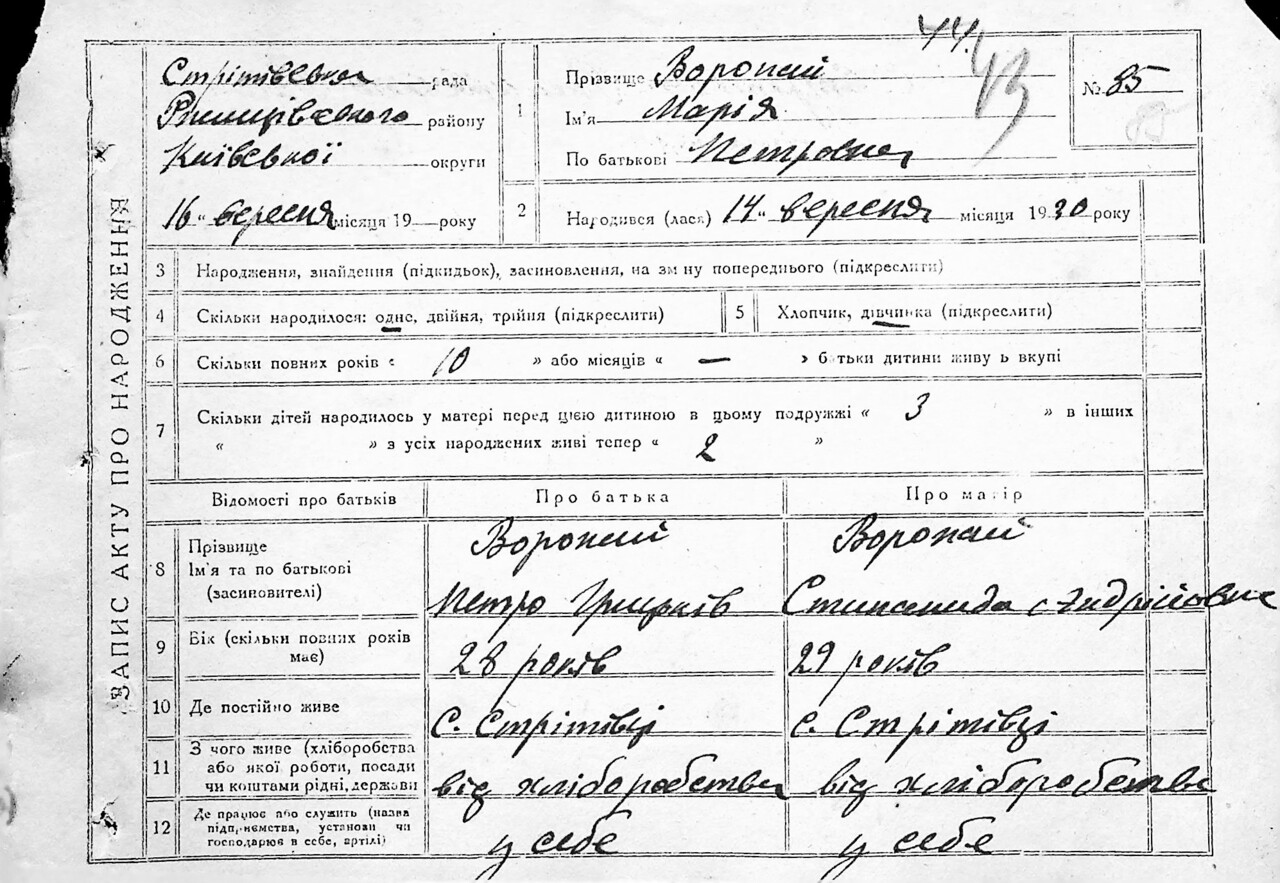 ЗАПИС АКТУ ПРО НАРОДЖЕННЯ
Стрітівська рада
Ржищівського району
Київської округи
16 „ вересня місяця 19 року
1
Прізвище Воропай
Ім'я Марія
По батькові Петровна
44.
43
№ 85
85
2
Народився (лася) 14 „ вересня місяця 1930 року
3 Народження, знайдення (підкидьок), засиновлення, на зміну попереднього (підкреслити)
4 Скільки народилося: одне, двійня, трійня (підкреслити)
5 Хлопчик, дівчинка (підкреслити)
6 Скільки повних років « 10 » або місяців « — » батьки дитини живуть вкупі
7 Скільки дітей народилось у матері перед цією дитиною в цьому подружжі « 3 » в інших
« » з усіх народжених живі тепер « 2 »
Відомості про батьків Про батька Про матір
8 Прізвище
Ім'я та по батькові
(засиновителі)
Воропай
Петро Грицьків
Воропай
Степанида Андрійовна
9 Вік (скільки повних років має)
28 років
29 років
10 Де постійно живе
с. Стрітівці
с. Стрітівці
11 З чого живе (хліборобства
або якої роботи, посади
чи коштами рідні, держави
від хліборобства
від хліборобства
12 Де працює або служить (назва
підприємства, установи чи
господарює в себе, артілі)
у себе
у себе